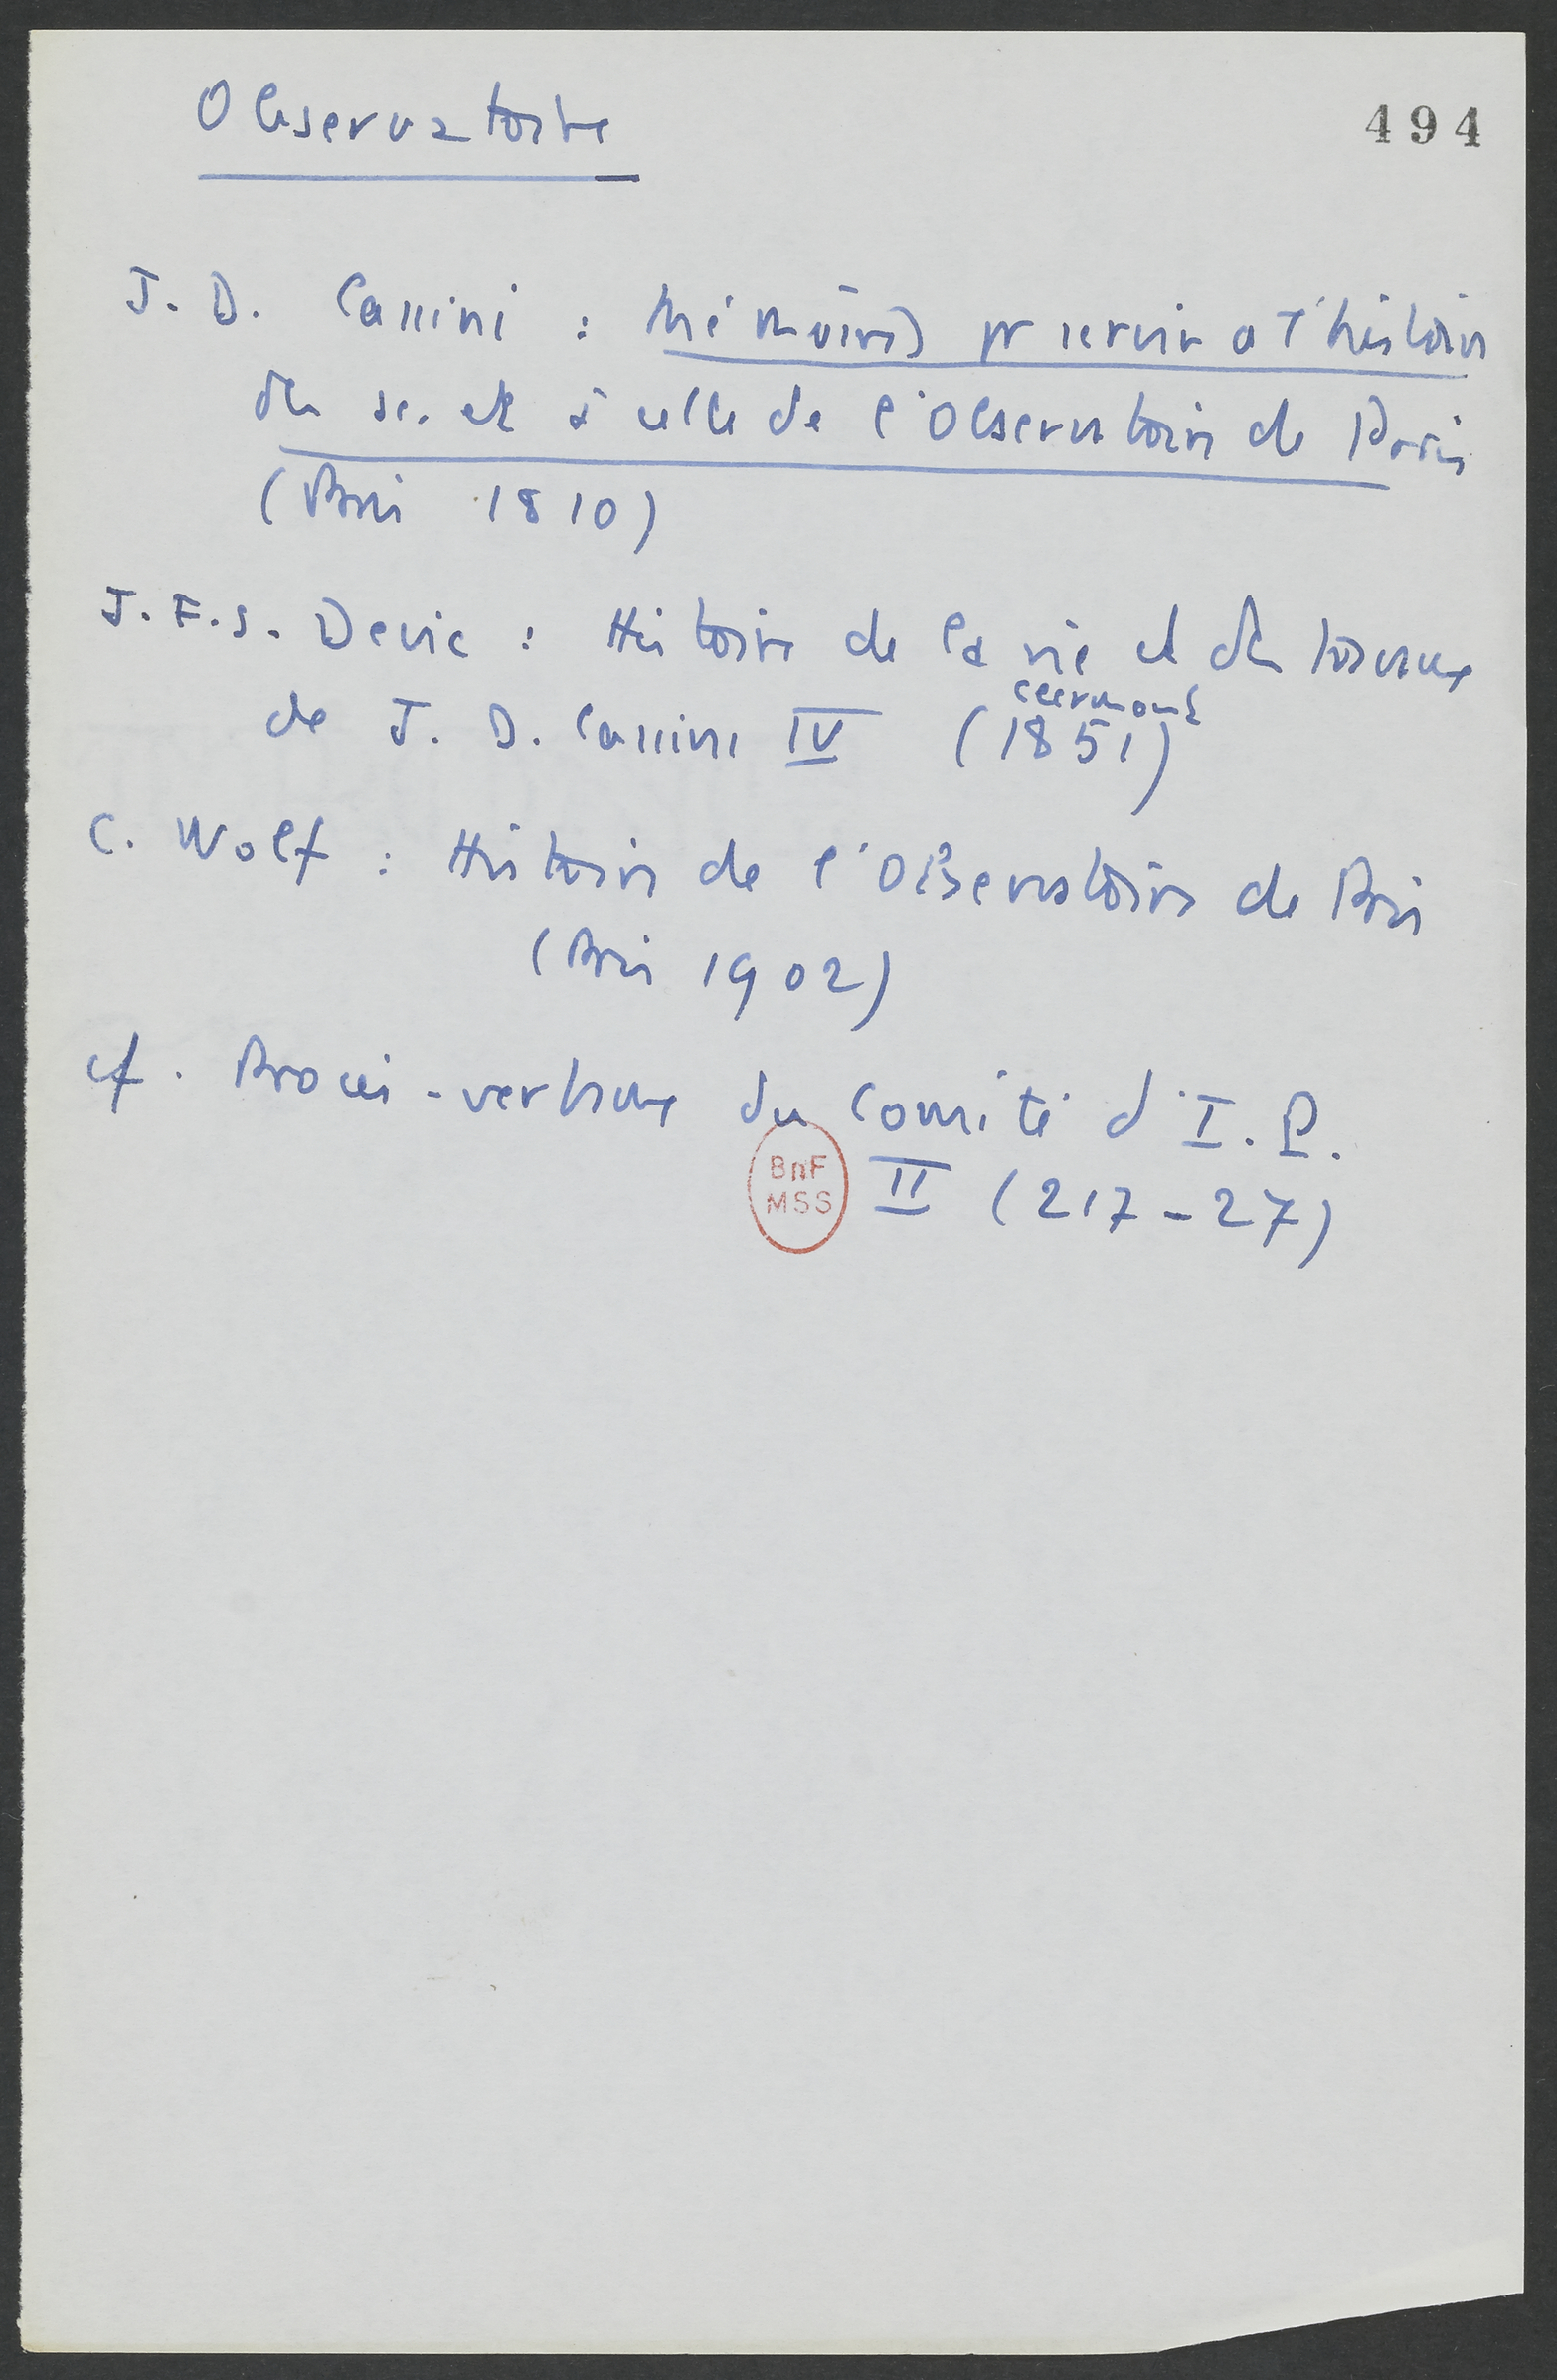 Observatoire
494
J. D. Cassini : Mémoires pr servir à l'histoire
des sc. et à celle de l'Observatoire de Paris
(Paris 1810)
J. F. S. Devic : Histoire de la vie et des travaux
Clermont
de J. D. Cassini IV (1851)
C. Wolf : Histoire de l'Observatoire de Paris
(Paris 1902)
cf. Procès-verbaux du Comité d'I. P.
BnF
MSS
II (217-27)